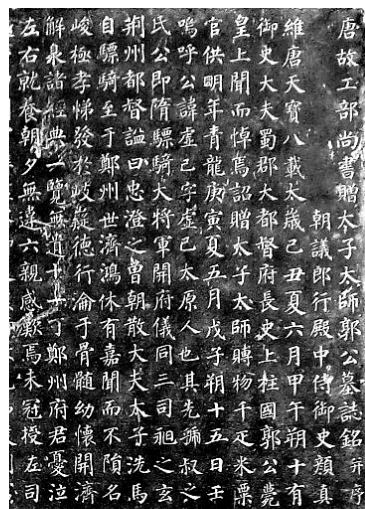 唐故工部尚書贈太子太師郭公墓誌銘并序
朝議郎行殿中侍御史顏真
維唐天寶八載太歲己丑夏六月甲午朔十有
御史大夫蜀郡大都督府長史上柱國郭公薨
皇上聞而悼焉詔贈太子太師賻物千疋米粟
官供明年青龍庚寅夏五月戊子朔十五日壬
嗚呼公諱虛己字虛己太原人也其先虢叔之
氏公即隋驃騎大將軍開府儀同三司昶之玄
荊州都督謚曰忠澄之曾朝散大夫太子洗馬
自驃騎至于鄭州世濟鴻休有嘉聞而不隕名
峻極孝悌發於岐嶷德行淪于骨髓幼懷開濟
解泉諸經典一覽無遺十一丁鄭州府君憂泣
左右就養朝夕無違六親感歎焉未冠授左司